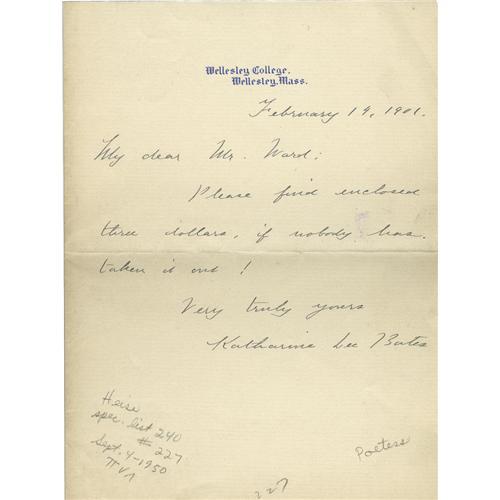 Wellesley College,
Wellesley, Mass.
February 19, 1901.
My dear Mr. Ward:
Please find enclosed
three dollars, if nobody has
taken it out!
Very truly yours
Katharine Lee Bates
Heise
spec. list 240
# 227
Sept. 4-1950
Poetess
227